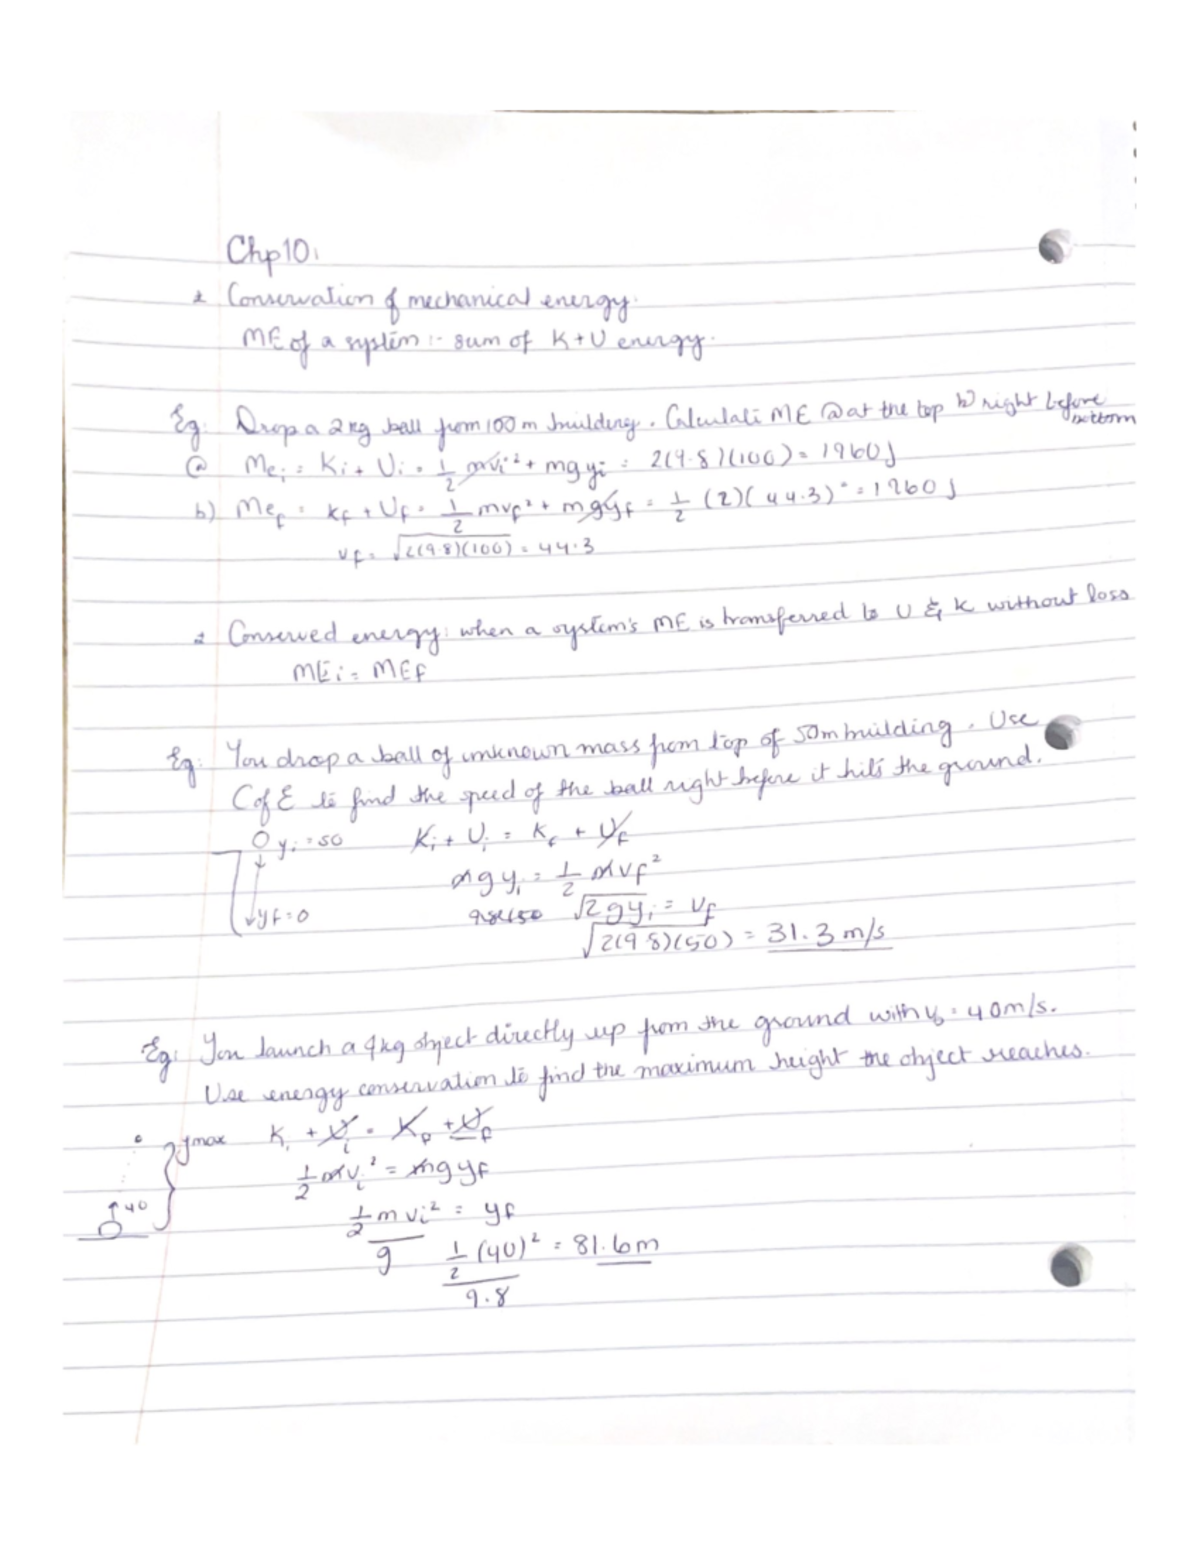 Chp10:
Conservation of mechanical energy.
ME of a system :- sum of K+U energy.
Eg: Drop a 2kg ball from 100m building. Calculate ME @ at the top b) right before bottom
@ Mei = Ki + Ui = 1/2 mvi² + mgyi = 2(9.8)(100) = 1960J
b) Mef = Kf + Uf = 1/2 mvf² + mgyf = 1/2 (2)(44.3)² = 1960J
vf = √2(9.8)(100) = 44.3
Conserved energy: when a system's ME is transferred to U & K without loss
MEi = MEf
Eg: You drop a ball of unknown mass from top of 50m building. Use
C of E to find the speed of the ball right before it hits the ground.
yi = 50 Ki + Ui = Kf + Uf
mgyi = 1/2 mvf²
yf = 0 √2gyi = vf
√2(9.8)(50) = 31.3 m/s
Eg: You launch a 4kg object directly up from the ground with v0 = 40m/s.
Use energy conservation to find the maximum height the object reaches.
ymax Ki + Ui = Kf + Uf
1/2 mvi² = mgyf
40 1/2 m vi² / g = yf
1/2 (40)² / 9.8 = 81.6m